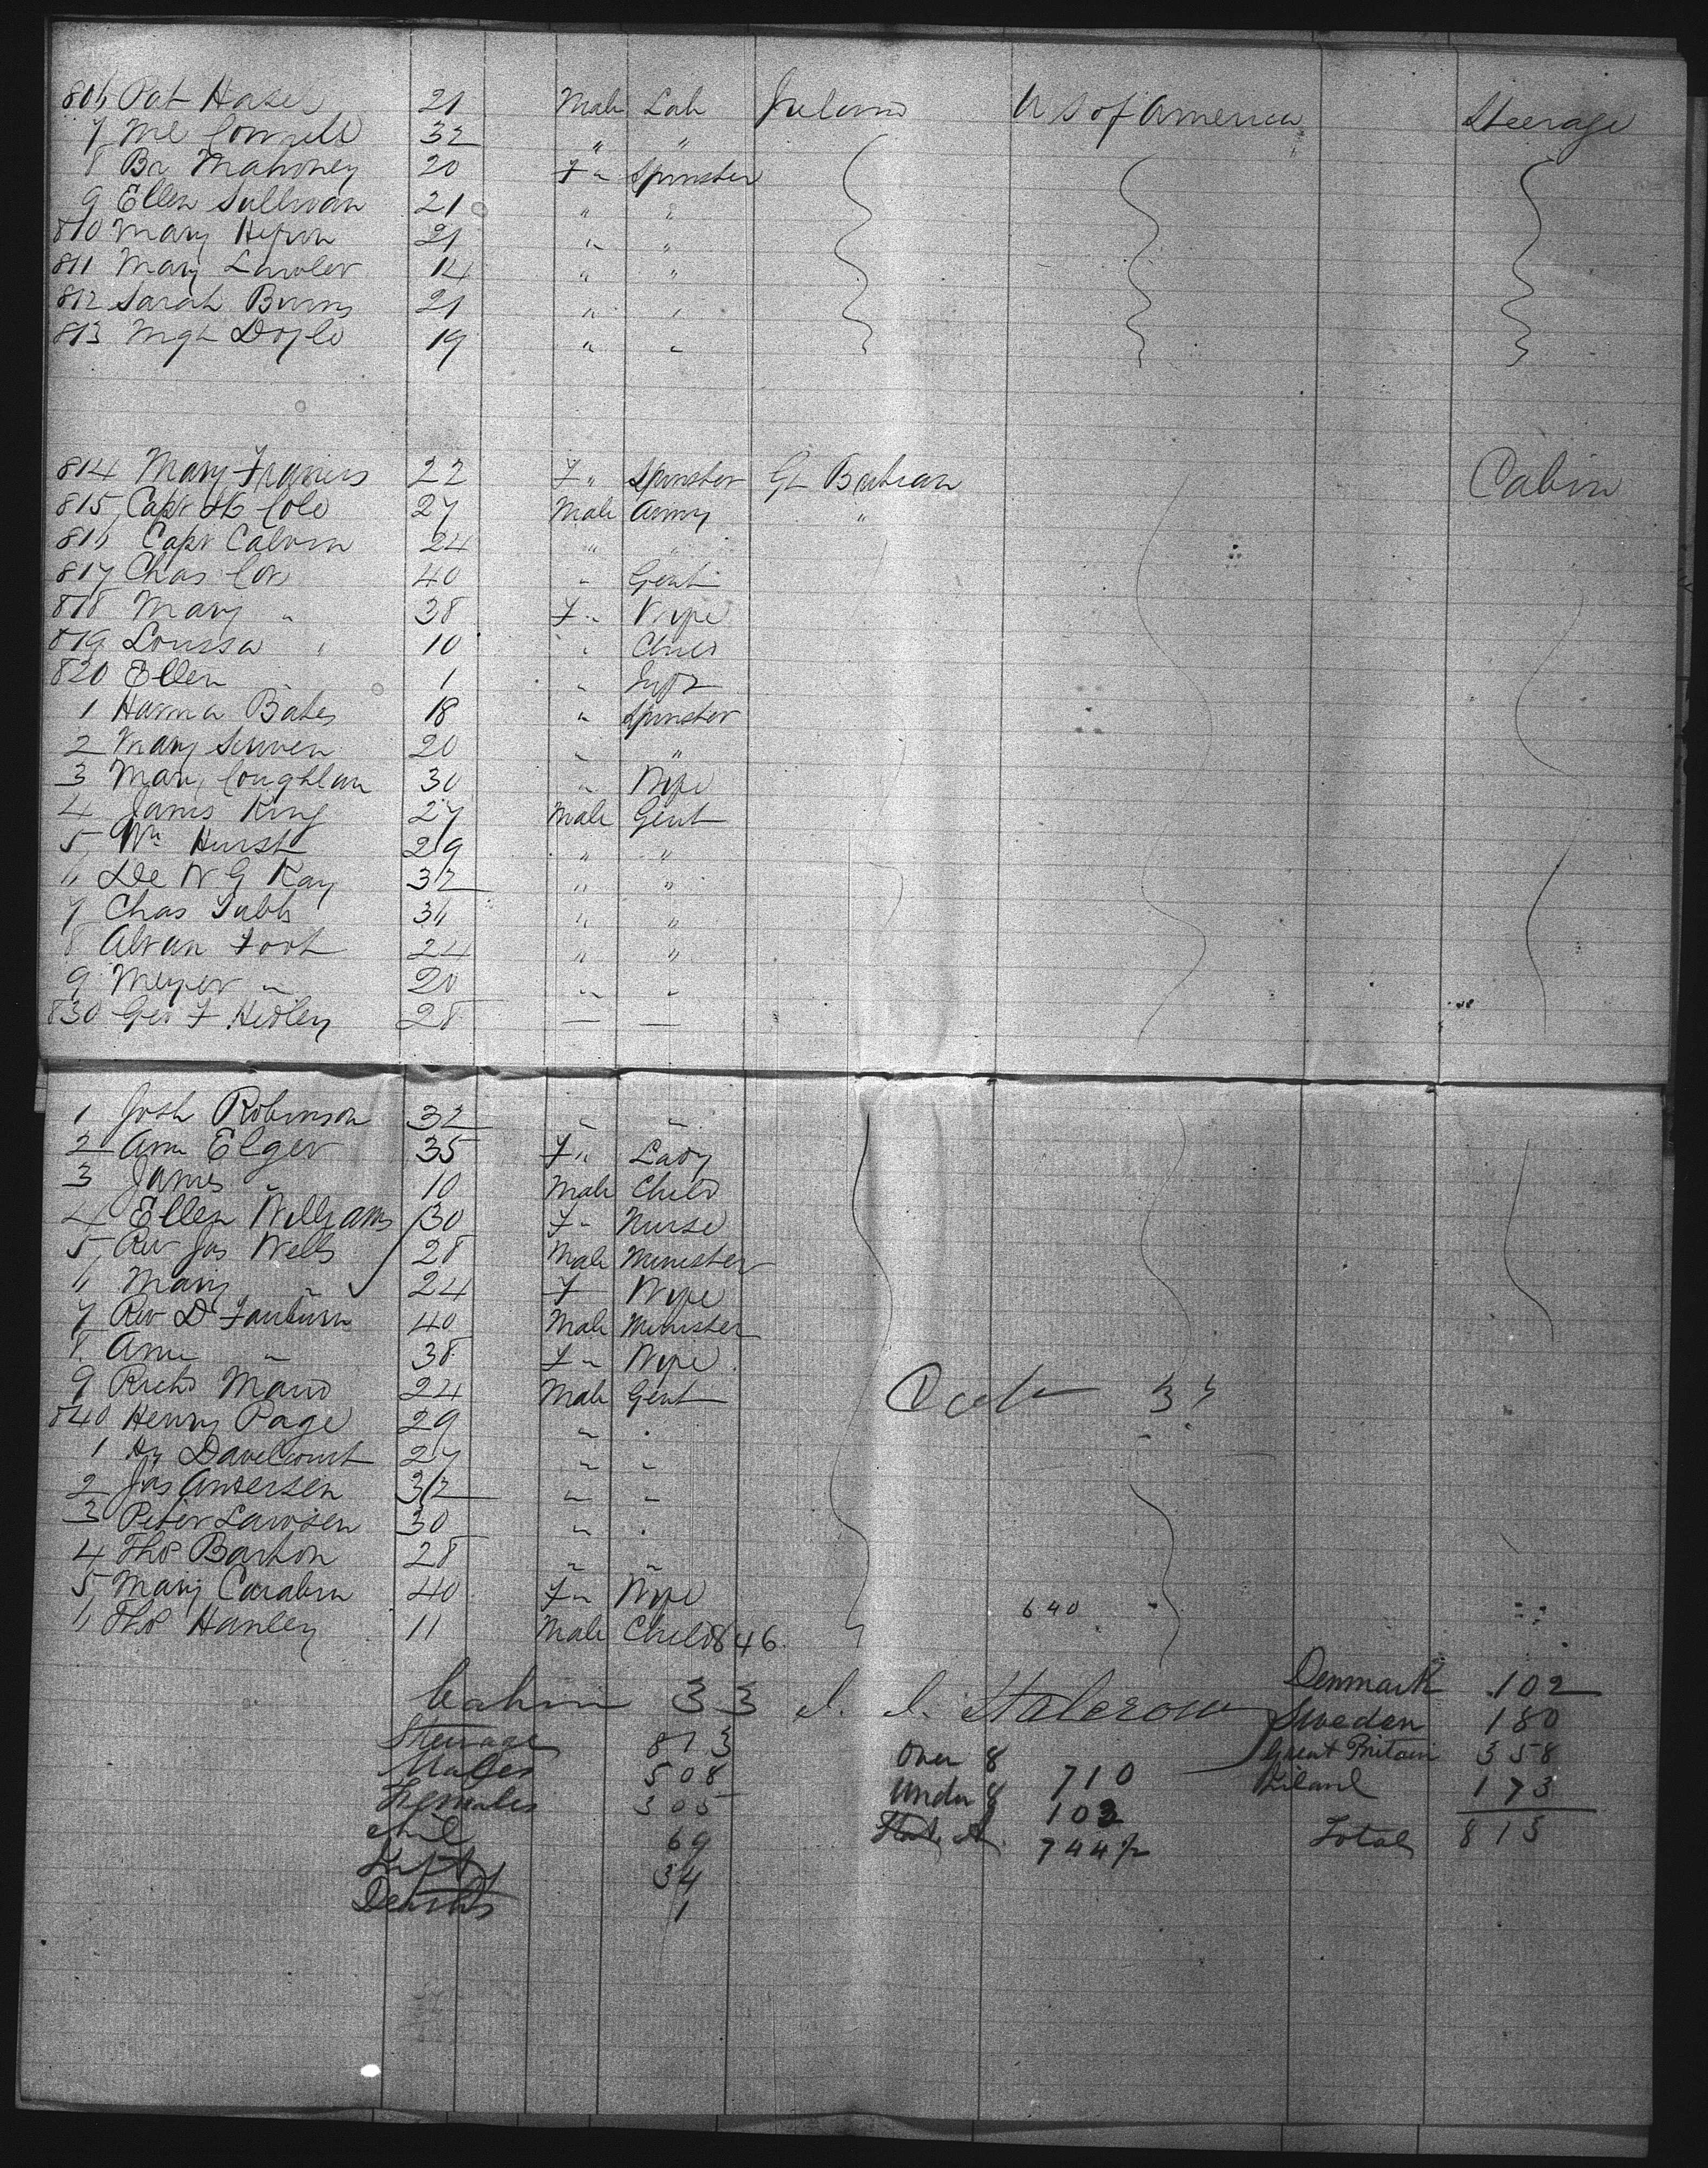 806 Pat Haser 21 Male Lab Ireland U S of America Steerage
7 Ml Connell 32 " "
8 Br Mahoney 20 F " Spinster
9 Ellen Sullivan 21 " "
810 Mary 21 " "
811 Mary Lawler 14 " "
812 Sarah Burns 21 " "
813 Mgt Doyle 19 " "
814 Mary Francis 22 F " Spinster Gt Britian Cabin
815 Capt Cole 27 Male Army "
816 Capt Calvin 24 " "
817 Chas Cox 40 " Gent
818 Mary " 38 F " Wife
819 Loussa " 10 " Child
820 Ellen " 1 " Inft
1 Hanna Bates 18 " Spinster
2 Mary 20 " "
3 Mary Coughlan 30 " Wife
4 James King 27 Male Gent
5 Wm Hurst 29 " "
6 De W G Kay 32 " "
7 Chas Tubbs 36 " "
8 Alvan Foot 24 " "
9 Meyer " 20 " "
830 Geo F Hedley 28 — —
1 Josh Robinson 32 " "
2 Ann Elger 35 F " Lady
3 James " 10 Male Child
4 Ellen Williams 30 F " Nurse
5 Rev Jas Wells 28 Male Minister
6 Mary " 24 F Wife
7 Rev D Fairburn 40 Male Minister
8 Ann " 38 F " Wife
9 Richd Mand 24 Male Gent
840 Henry Page 29 " "
1 Hy Davelcourt 27 " "
2 Jas Andersen 32 " "
3 Peter Lawsen 30 " "
4 Thos Barton 28 " "
5 Mary Carabin 40 F " Wife 640
6 Thos Hanley 11 Male Child 846
Cabin 33 Denmark 102
Steerage 813 Sweden 180
Males 508 Over 8 710 Great Britain 358
Females 305 Under 8 103 Ireland 173
Chil 69 744½ Total 813
Infts 34
Deaths 1